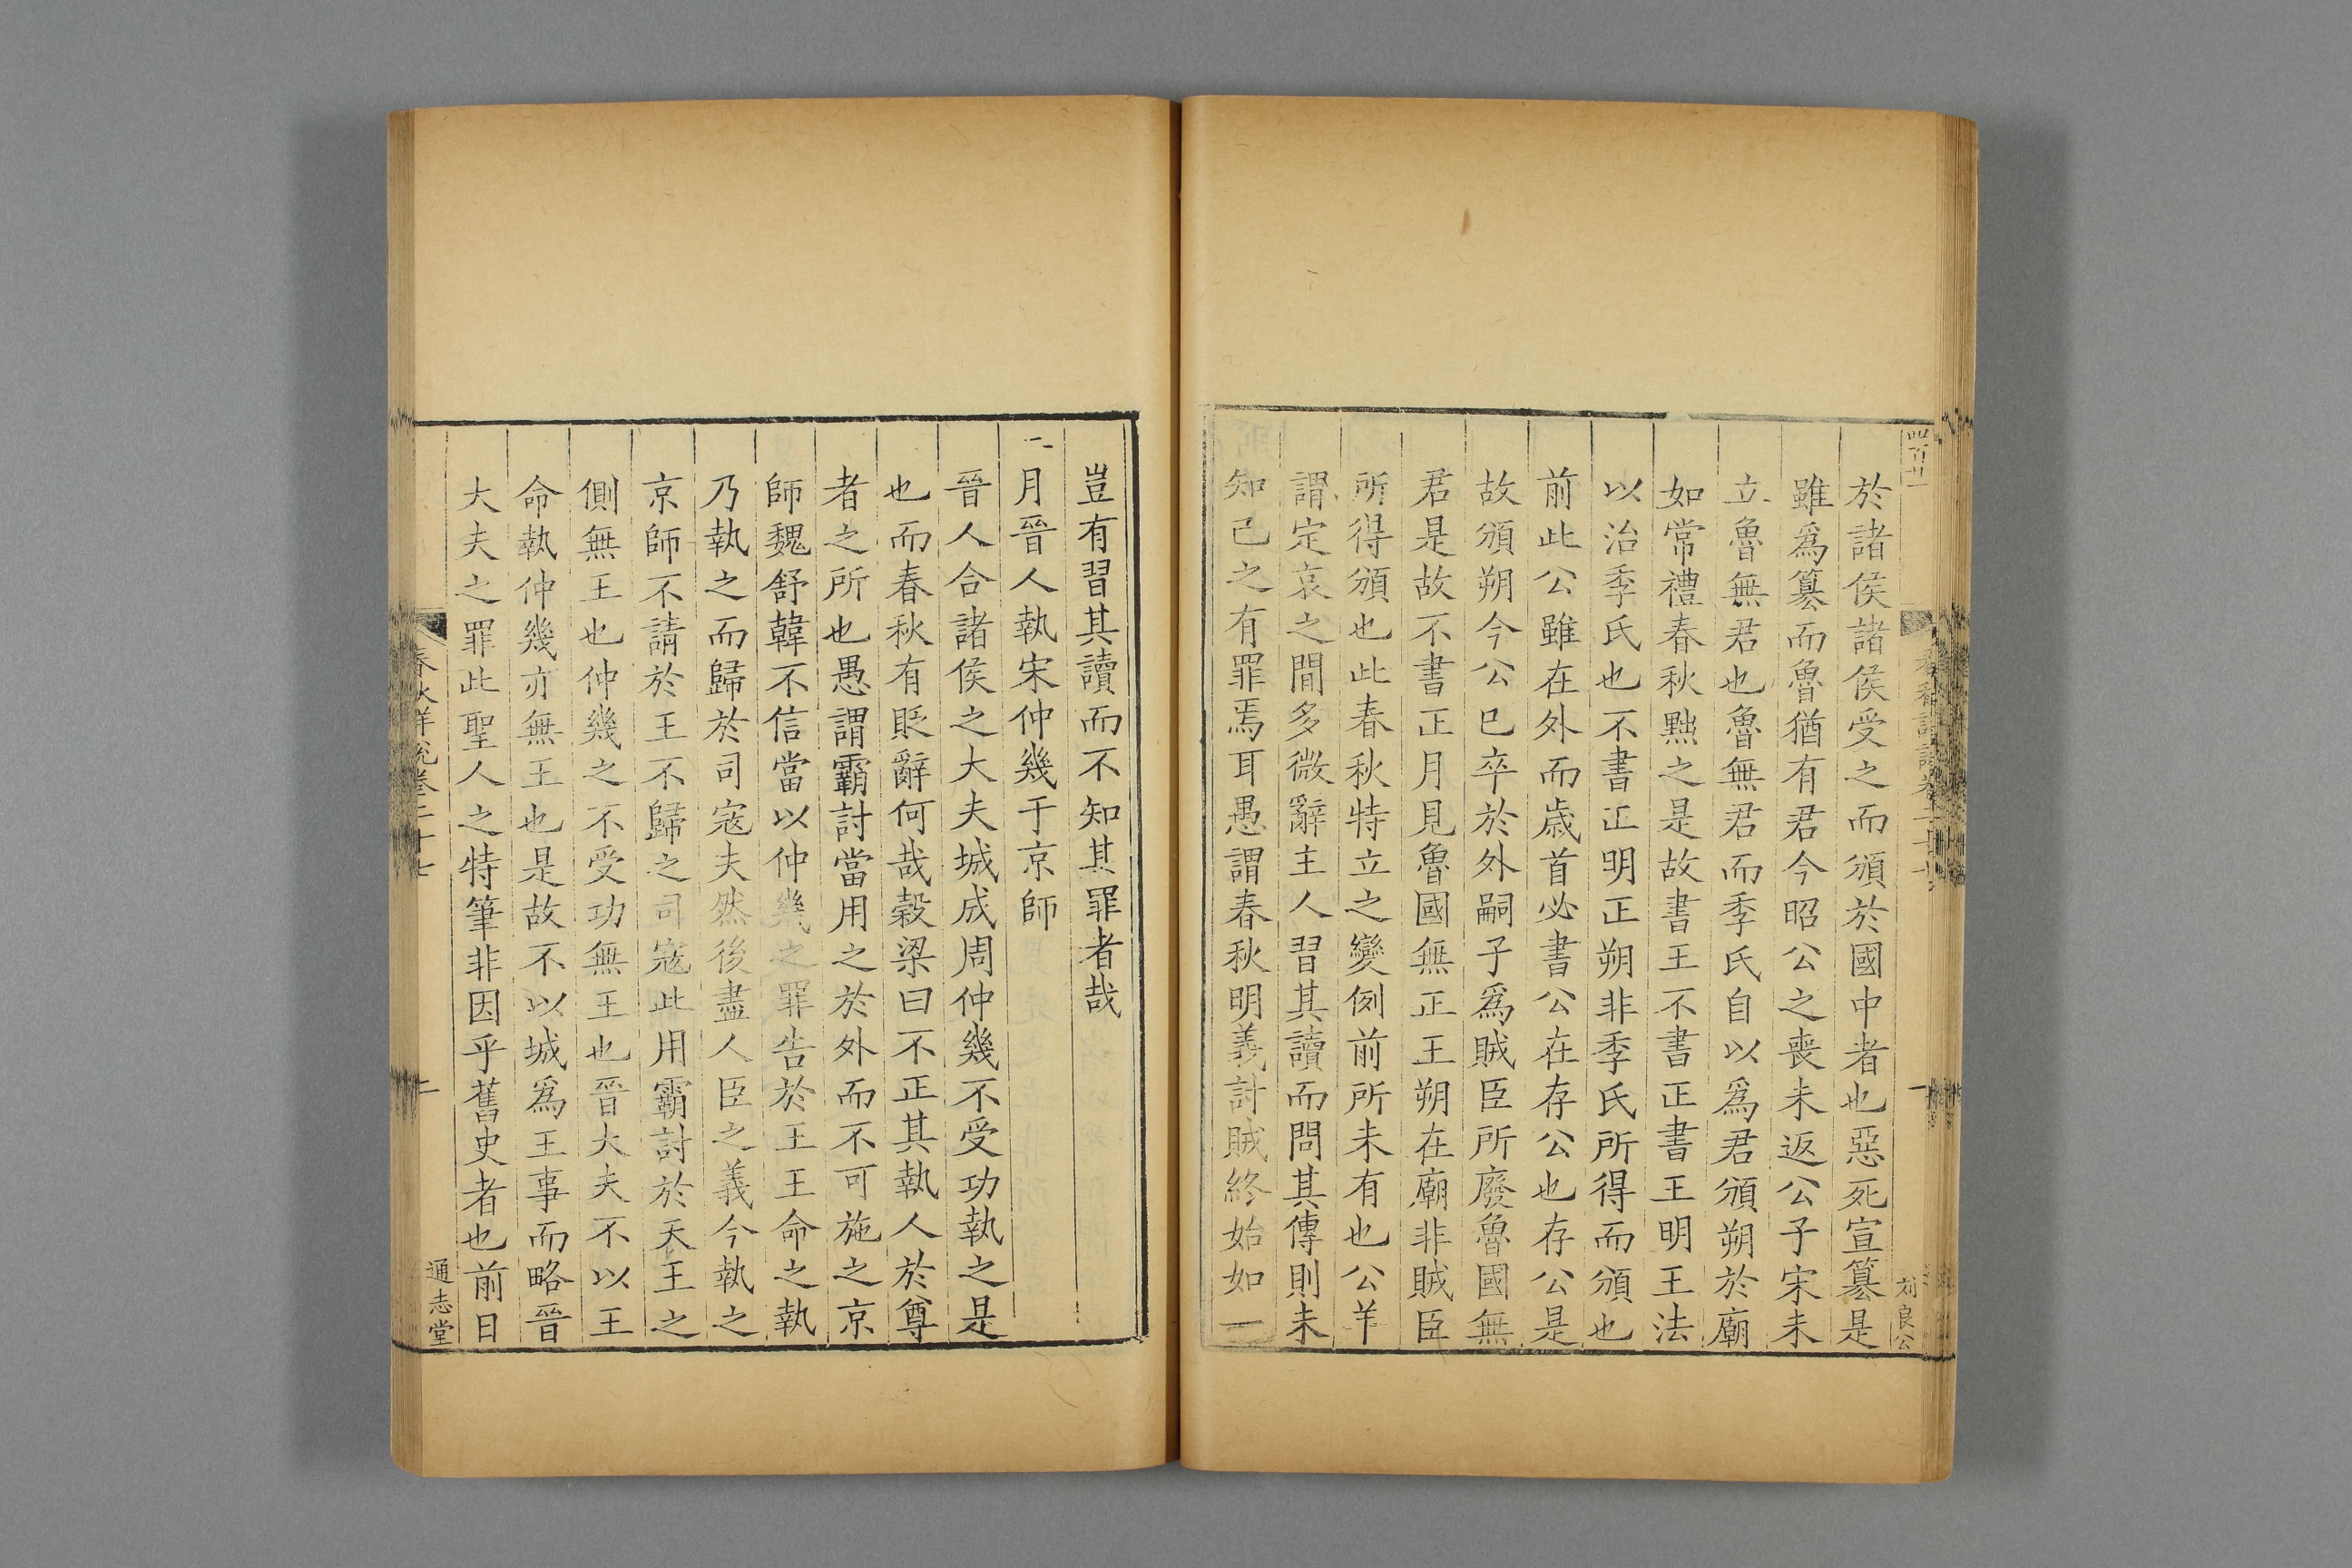 於諸侯諸侯受之而頒於國中者也惡死宣篡是
雖爲篡而魯猶有君今昭公之喪未返公子宋未
立魯無君也魯無君而季氏自以爲君頒朔於廟
如常禮春秋黜之是故書王不書正書王明王法
以治季氏也不書正明正朔非季氏所得而頒也
前此公雖在外而歲首必書公在存公也存公是
故頒朔今公已卒於外嗣子爲賊臣所廢魯國無
君是故不書正月見魯國無正王朔在廟非賊臣
所得頒也此春秋特立之變例前所未有也公羊
謂定哀之間多微辭主人習其讀而問其傳則未
知己之有罪焉耳愚謂春秋明義討賊終始如一
劉良公
豈有習其讀而不知其罪者哉
二月晉人執宋仲幾于京師
晉人合諸侯之大夫城成周仲幾不受功執之是
也而春秋有貶辭何哉穀梁曰不正其執人於尊
者之所也愚謂霸討當用之於外而不可施之京
師魏舒韓不信當以仲幾之罪告於王王命之執
乃執之而歸於司寇夫然後盡人臣之義今執之
京師不請於王不歸之司寇此用霸討於天王之
側無王也仲幾之不受功無王也晉大夫不以王
命執仲幾亦無王也是故不以城爲王事而略晉
大夫之罪此聖人之特筆非因乎舊史者也前日
春秋詳說卷二十七
二
通志堂